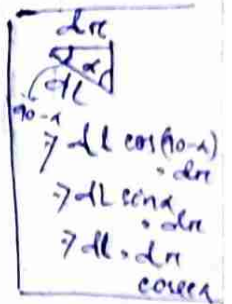 dx
α
dl
90-α
⇒ dl cos(90-α)
= dx
⇒ dl sinα
= dx
⇒ dl = dx
cosecα